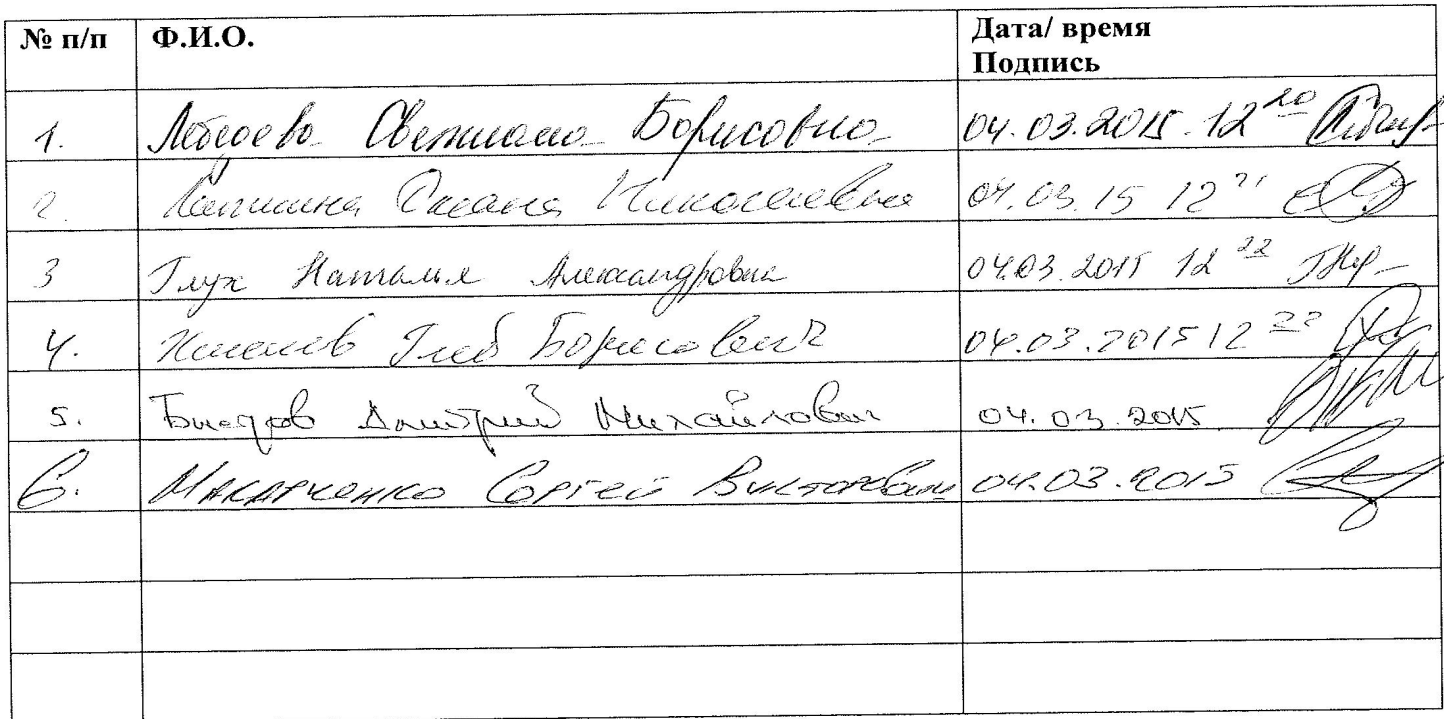 № п/п Ф.И.О. Дата/ время
Подпись
1. Лебедева Светлана Борисовна 04.03.2015 12 20
2. Оксана Николаевна 04.03.15 12 21
3 Глух Наталья Александровна 04.03.2015 12 22
4. Глеб Борисович 04.03.2015 12 22
5. Дмитрий Михайлович 04.03.2015
6. Макарченко Сергей Викторович 04.03.2015